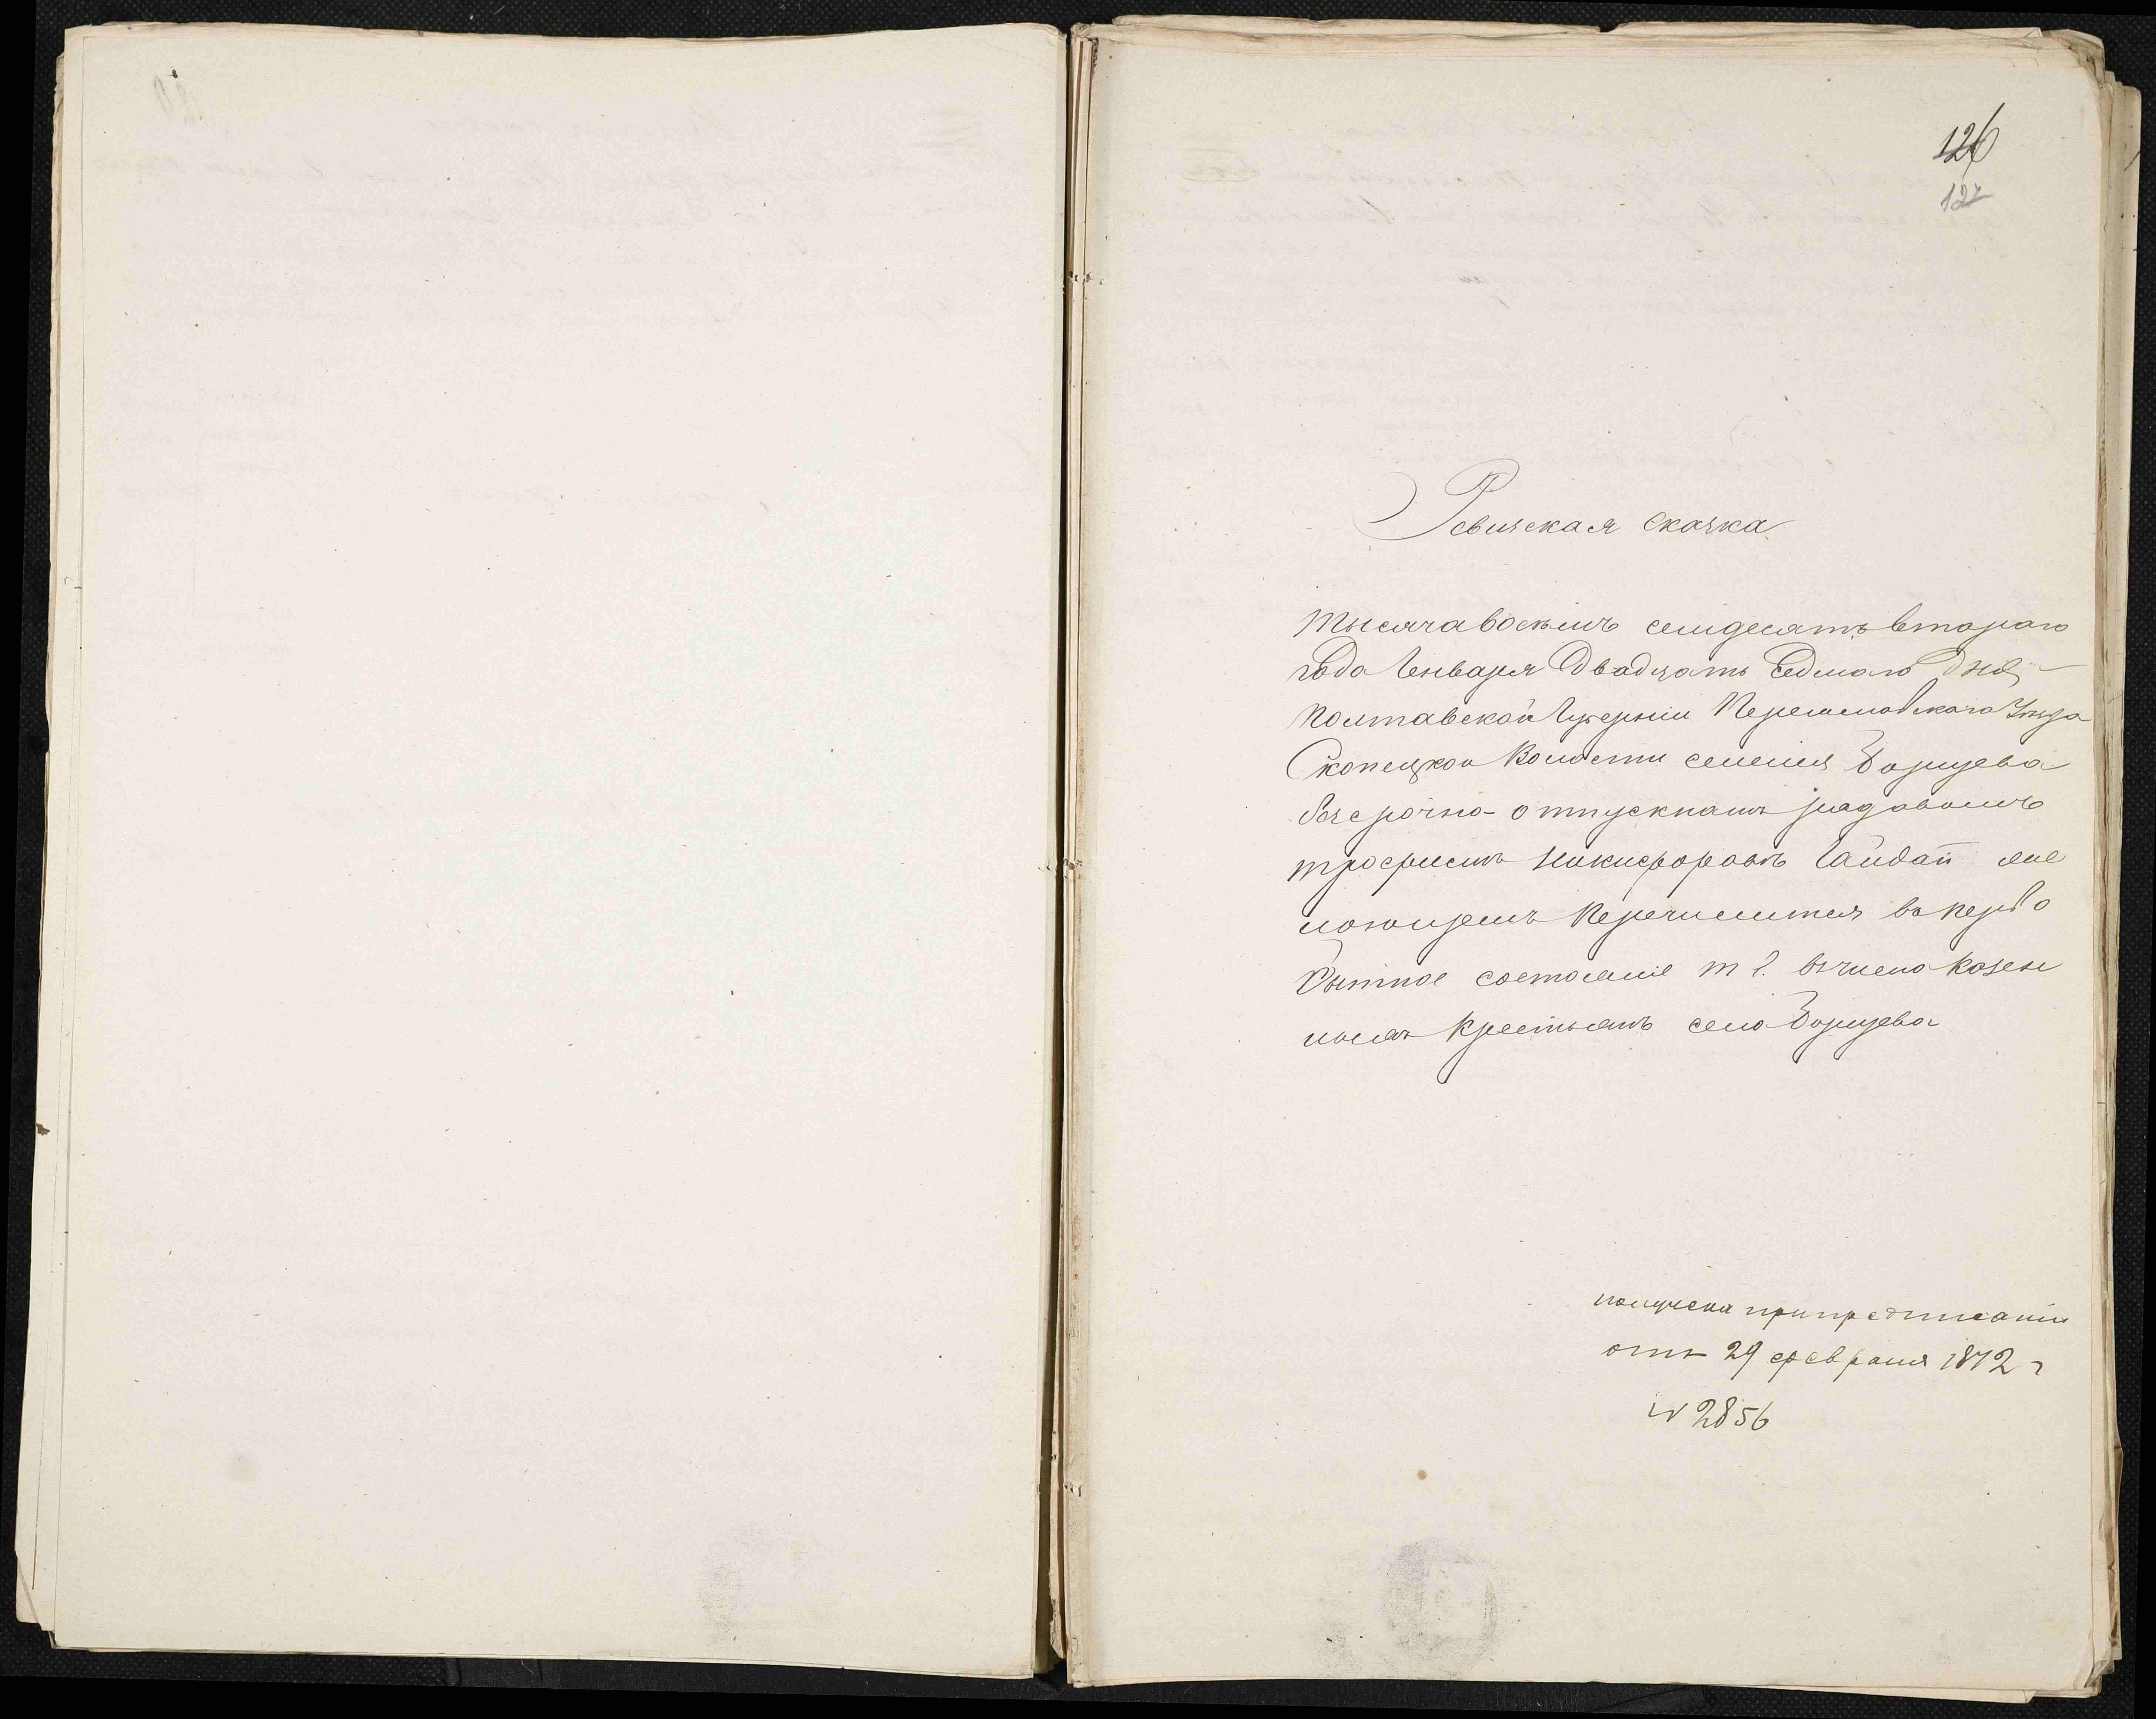 126
127
Ревизская сказка
тысяча восьмъ семдесятъ втораго
года Генваря Двадцать Седмаго Дня
Полтавской Губерніи Переяславскаго Уезда
Скопецкой Волости селенія Борщева
безсрочно-отпускнамъ рядовомъ
трофимъ Никифоровъ Гайдай же
лающемъ Перечислится въ перво
бытное состояніе т е. въ число козен
ныхъ Крестьянъ села Борщева
получена при предписаніи
отъ 29 февраля 1872 г
№ 2856